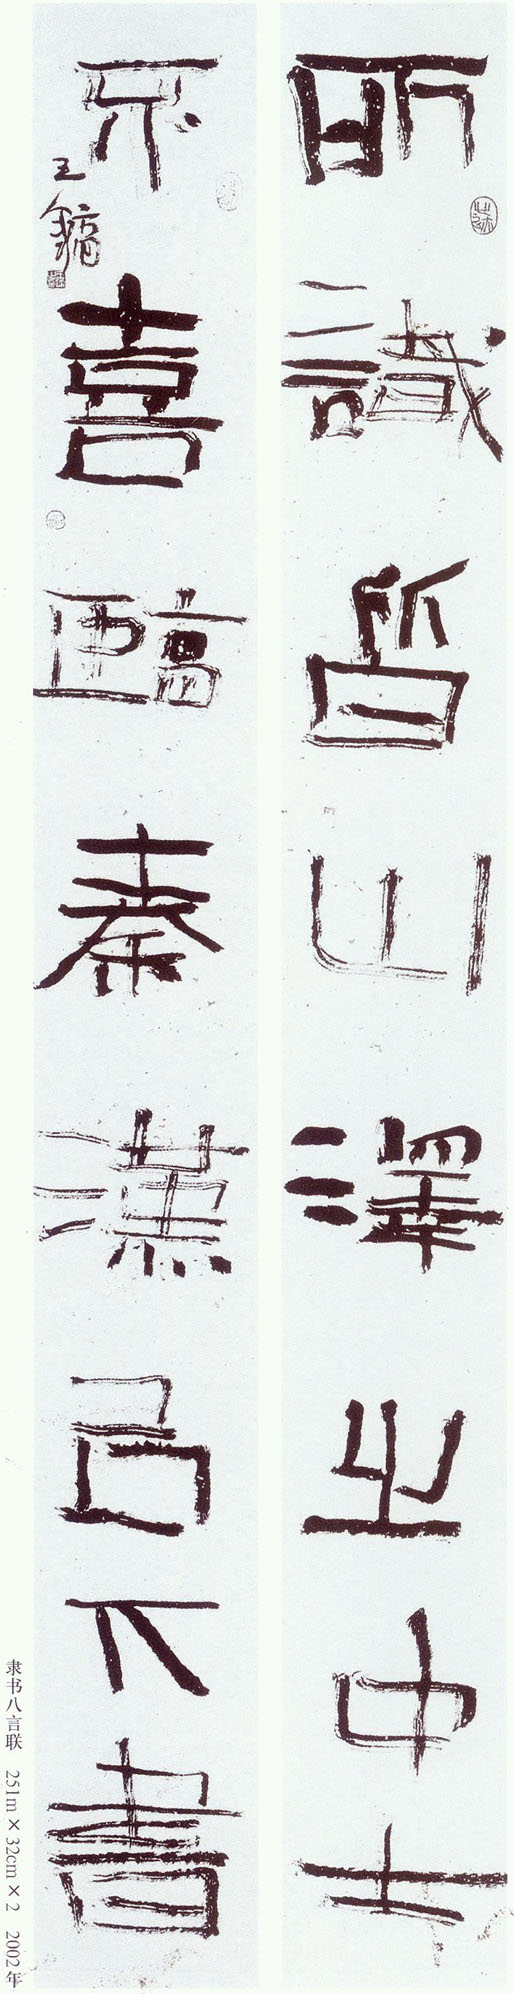 所識皆山澤之中士
不喜臨秦漢㠯下書
王鏞
隶书八言联 251m×32cm×2 2002年